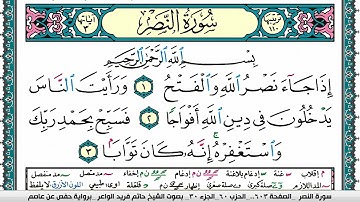 ترتيبها ١١٠
سُورَةُ النَّصْرِ
آياتها ٣
بِسْمِ ٱللَّهِ ٱلرَّحْمَٰنِ ٱلرَّحِيمِ
إِذَا جَآءَ نَصْرُ ٱللَّهِ وَٱلْفَتْحُ ١ وَرَأَيْتَ ٱلنَّاسَ
يَدْخُلُونَ فِى دِينِ ٱللَّهِ أَفْوَاجًا ٢ فَسَبِّحْ بِحَمْدِ رَبِّكَ
وَٱسْتَغْفِرْهُ إِنَّهُۥ كَانَ تَوَّابًۢا ٣
سورة النصر الصفحة ٦٠٣ الحزب ٦٠ الجزء ٣٠ بصوت الشيخ حاتم فريد الواعر برواية حفص عن عاصم